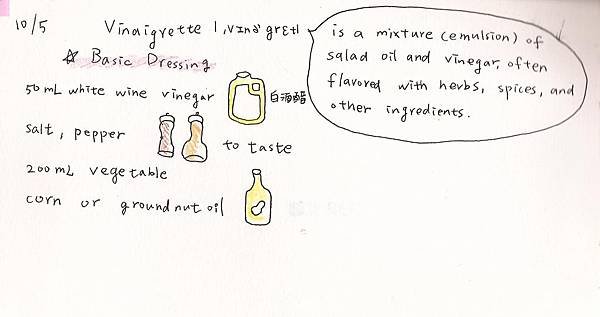 10/5 Vinaigrette |ˌvɪnəˈgrɛt|
☆ Basic Dressing
50 mL white wine vinegar 白酒醋
salt, pepper to taste
200 mL vegetable
corn or groundnut oil
is a mixture (emulsion) of
salad oil and vinegar, often
flavored with herbs, spices, and
other ingredients.